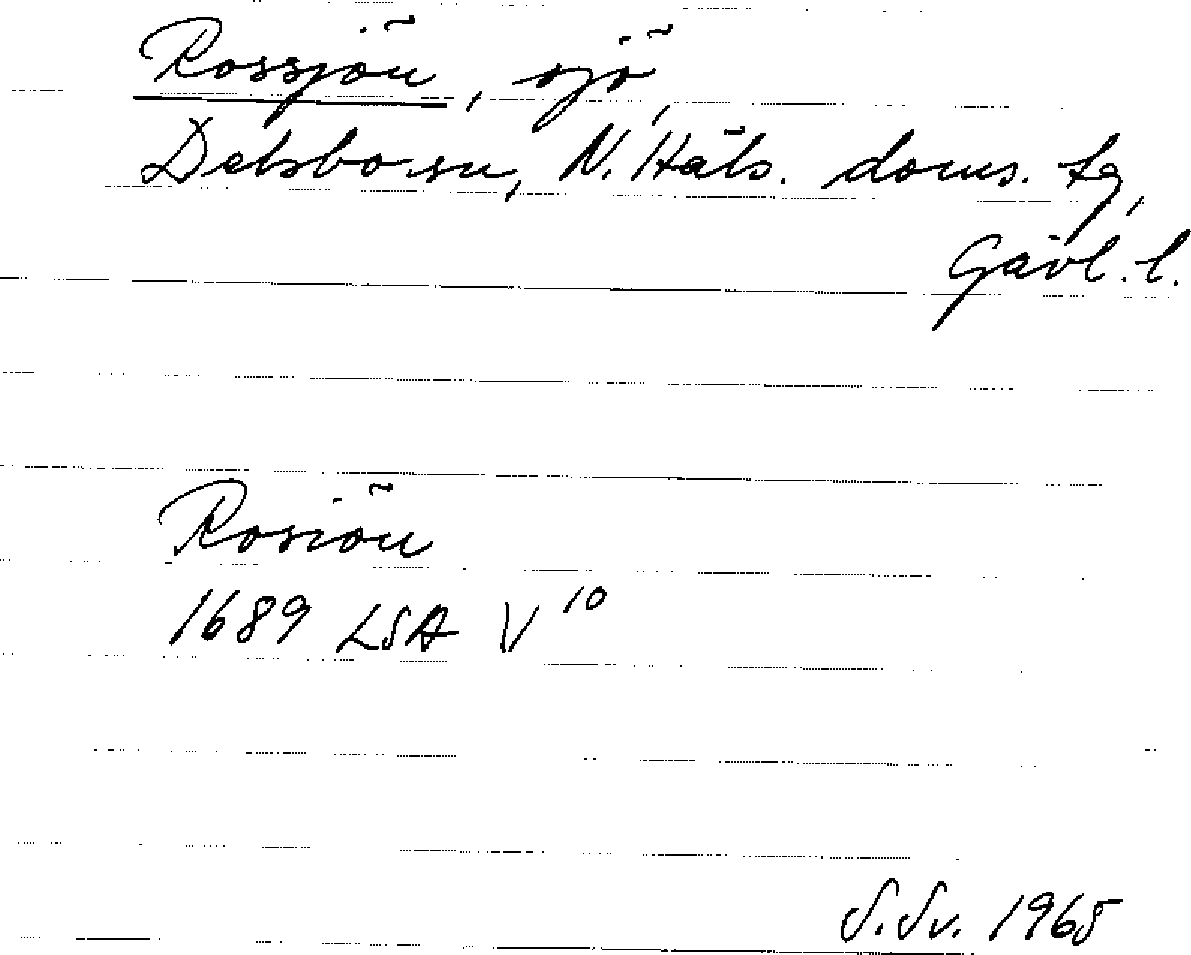 Rossjön, sjö,
Delsbo sn, N. Häls. doms. tg,
Gävl. l.
Rosiön
1689 LSA V 10
S. Sv. 1965